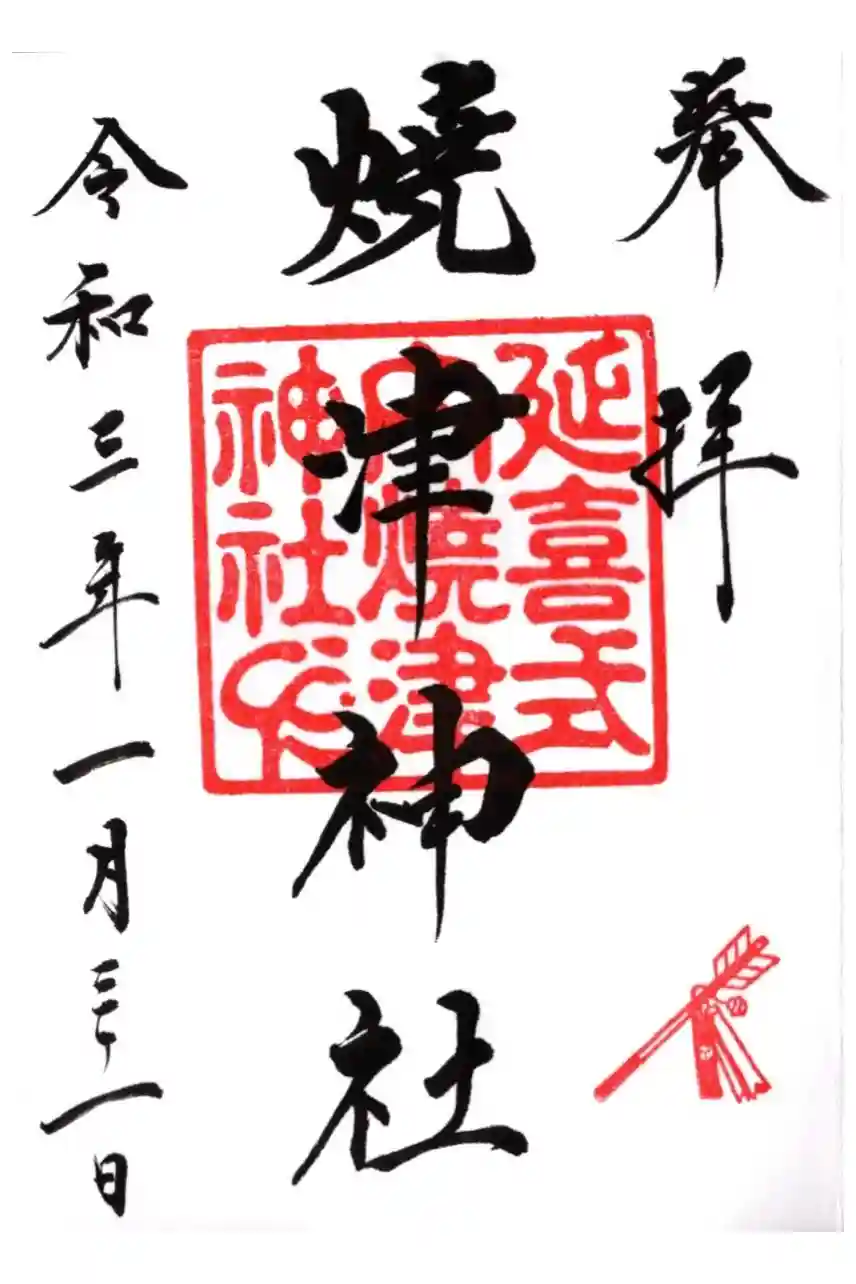 奉拝
焼津神社
令和三年一月三十一日
延喜式
内燒津
神社印